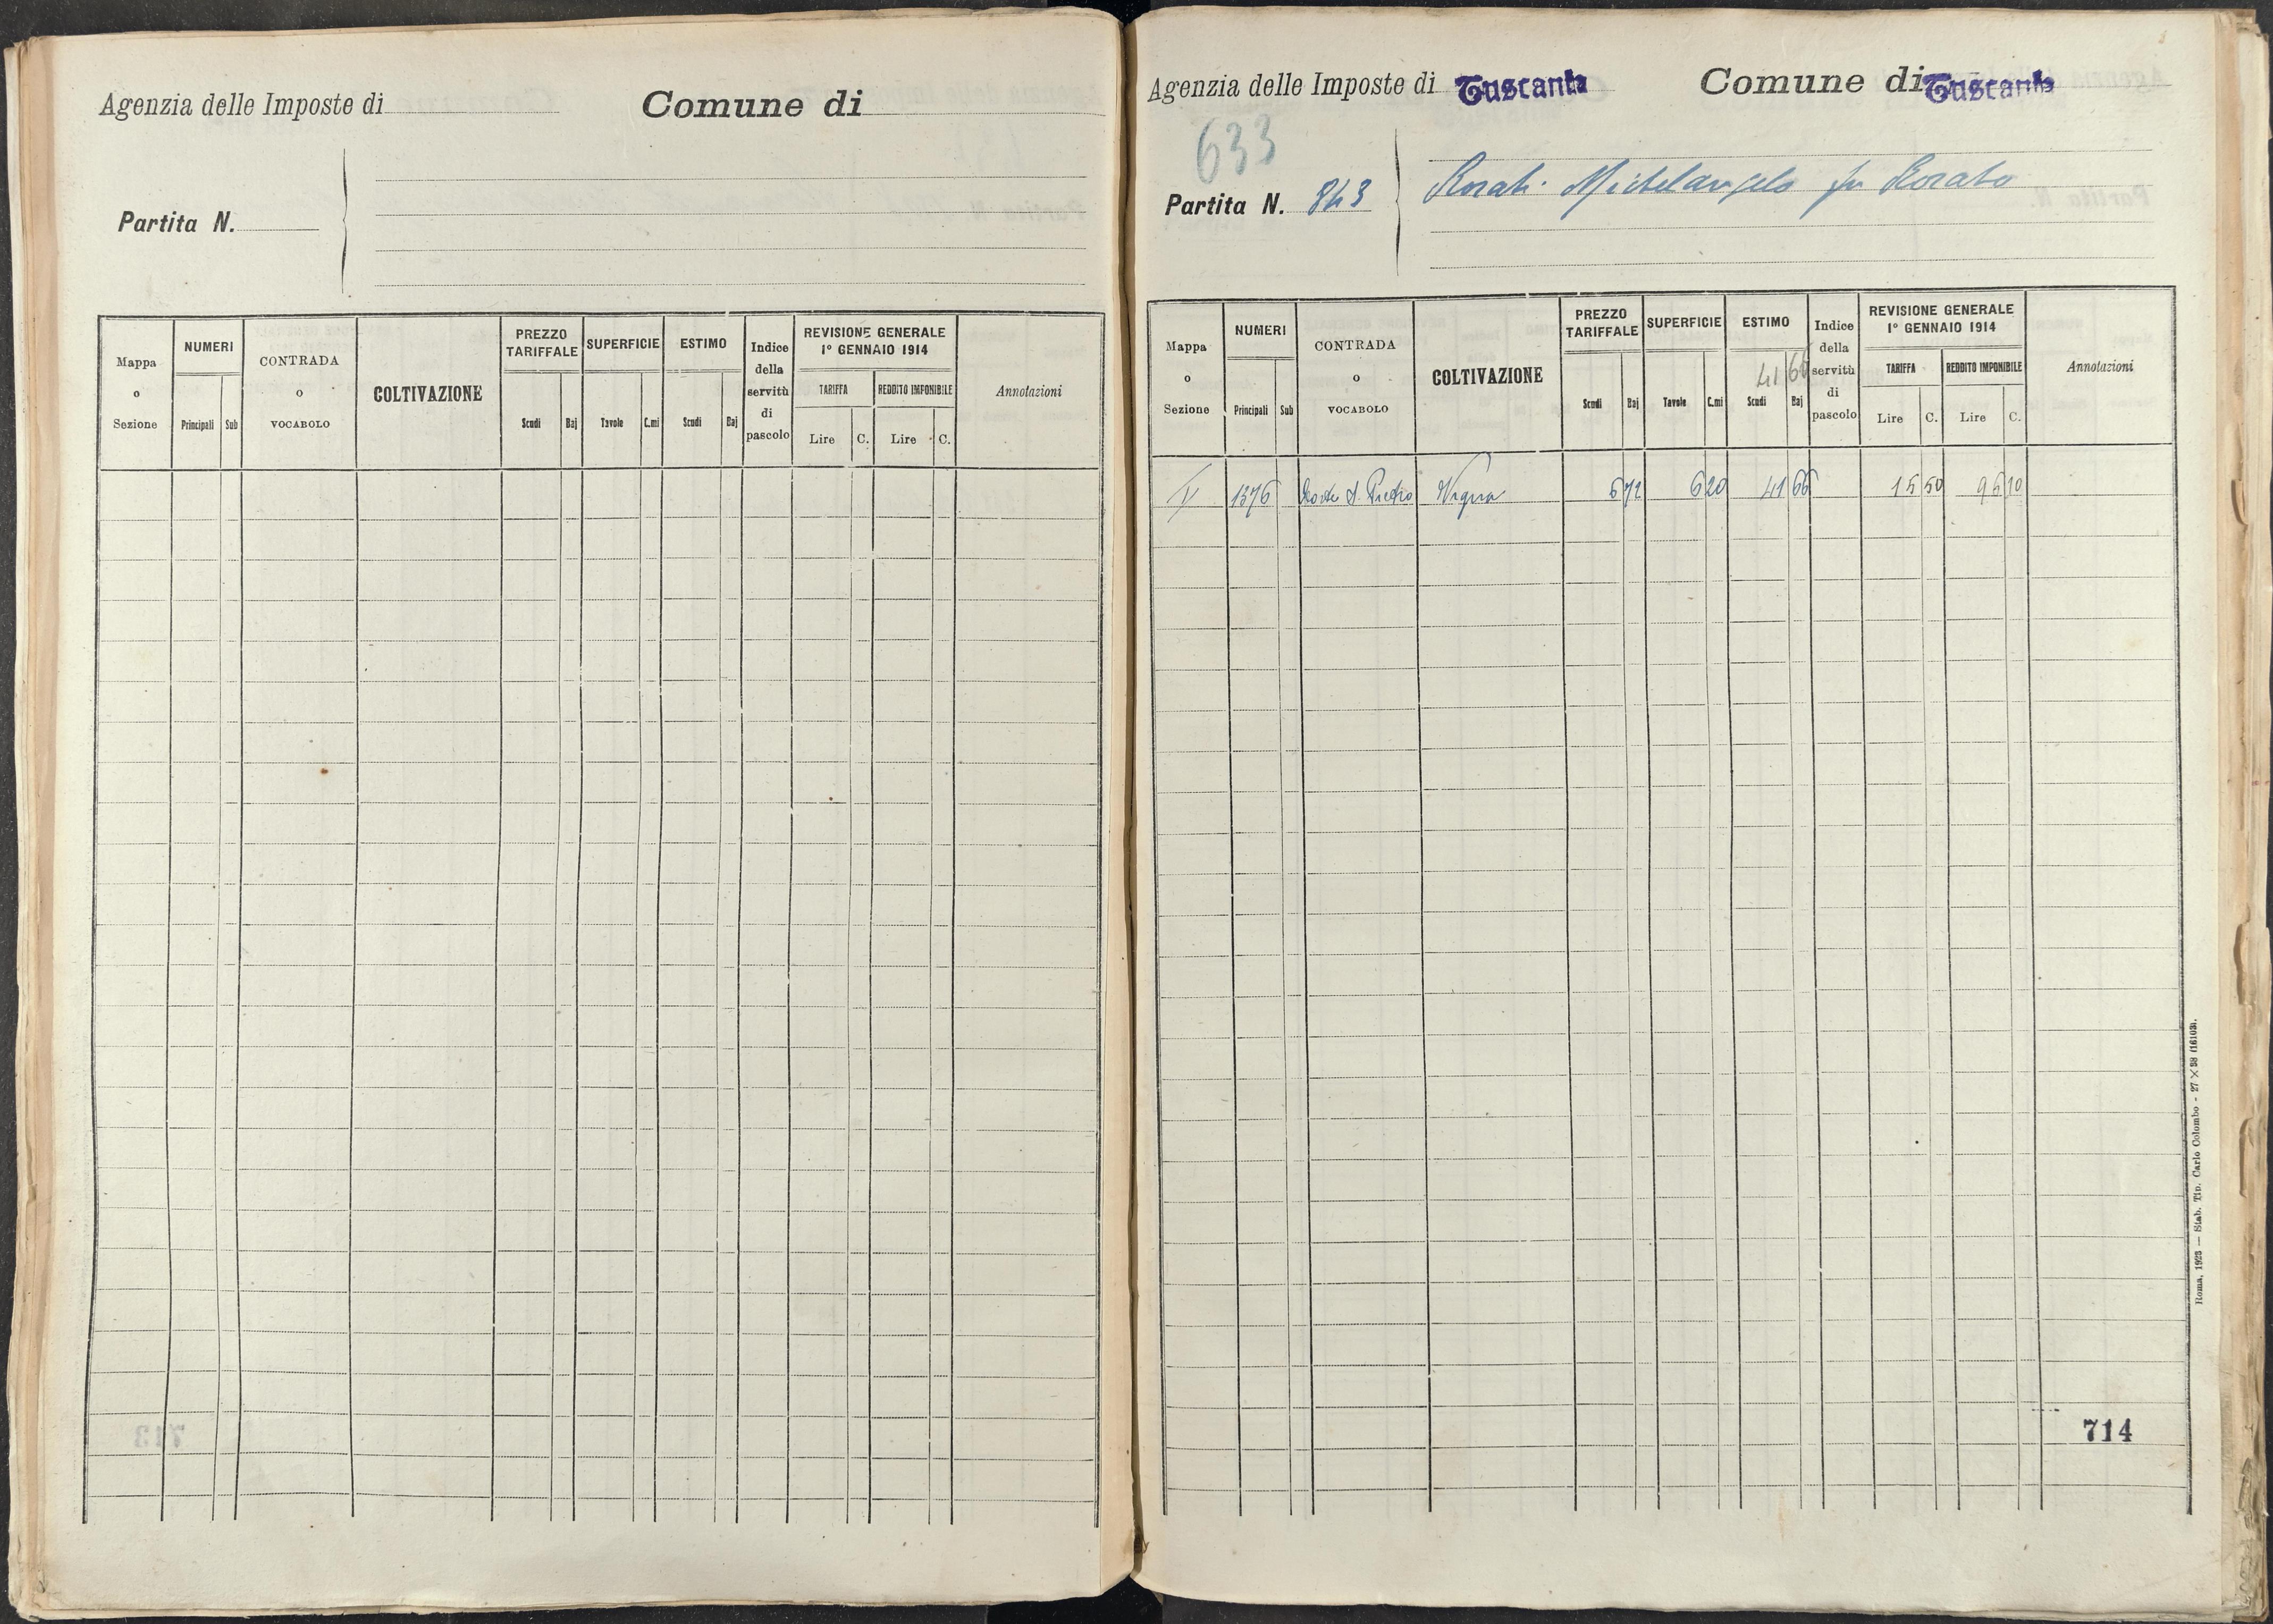 Agenzia delle Imposte di
Comune di
Partita N.
Mappa o Sezione
NUMERI
Principali Sub
CONTRADA o VOCABOLO
COLTIVAZIONE
PREZZO TARIFFALE
Scudi Baj
SUPERFICIE
Tavole C.mi
ESTIMO
Scudi Baj
Indice della servitù di pascolo
REVISIONE GENERALE
1° GENNAIO 1914
TARIFFA
Lire C.
REDDITO IMPONIBILE
Lire C.
Annotazioni
Agenzia delle Imposte di Tuscania
Comune di Tuscania
633
Partita N. 843
Rosati Michelangelo fu Rosato
Mappa o Sezione
NUMERI
Principali Sub
CONTRADA o VOCABOLO
COLTIVAZIONE
PREZZO TARIFFALE
Scudi Baj
SUPERFICIE
Tavole C.mi
ESTIMO
41 66
Scudi Baj
Indice della servitù di pascolo
REVISIONE GENERALE
1° GENNAIO 1914
TARIFFA
Lire C.
REDDITO IMPONIBILE
Lire C.
Annotazioni
V 1376 S. Pietro Vigna 6 72 6 20 41 66 15 50 96 10
714
Roma, 1923 — Stab. Tip. Carlo Colombo - 27 × 38 (16103).